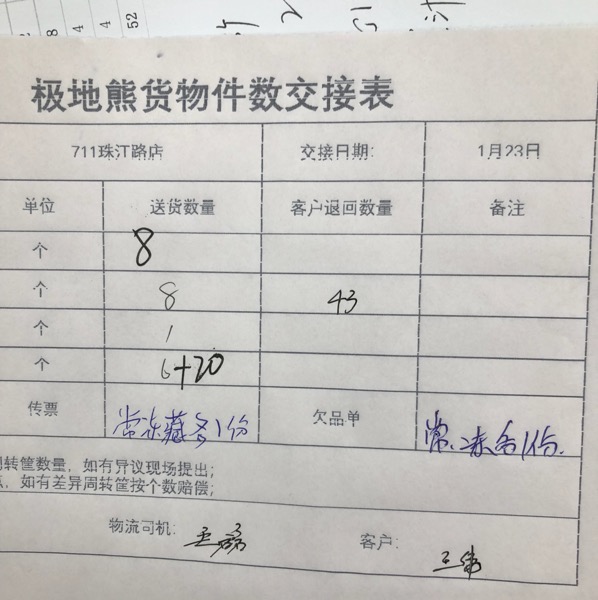 8
4
4
52
极地熊货物件数交接表
711珠江路店 交接日期: 1月23日
单位 送货数量 客户退回数量 备注
个 8
个 8 43
个 1
个 6+20
传票 常冻藏各1份 欠品单 常.冻各1份.
周转筐数量，如有异议现场提出;
，如有差异周转筐按个数赔偿;
物流司机: 客户: